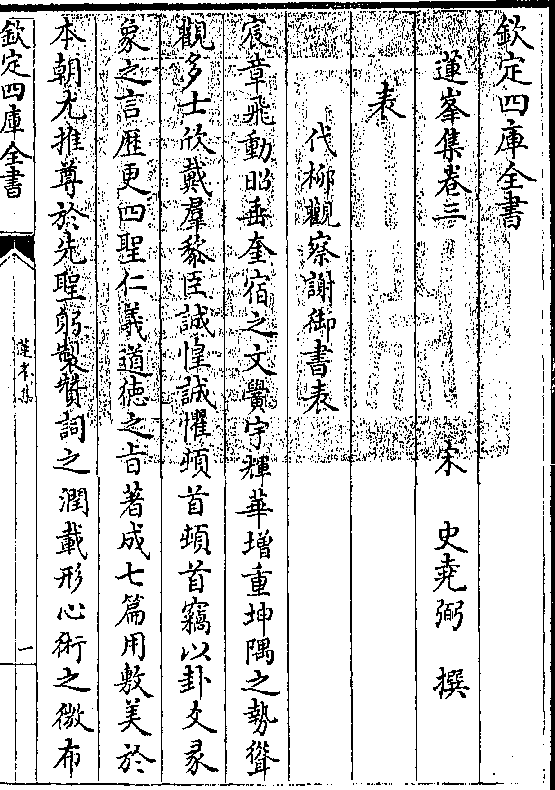 欽定四庫全書
蓮峯集卷三　宋　史堯弼　撰
表
代柳觀察謝御書表
宸章飛動昭垂奎宿之文黌宇輝華增重坤隅之勢聳
觀多士欣戴羣黎臣誠惶誠懼頓首頓首竊以卦爻彖
象之言歴更四聖仁義道徳之㫖著成七篇用敷美於
本朝尤推尊於先聖躬製賛詞之潤載形心術之微布
欽定四庫全書
蓮峯集
一